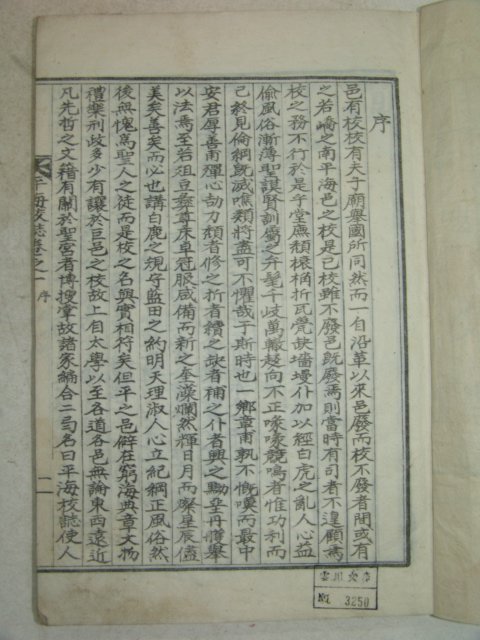 序
邑有校校有夫子廟擧國所同然而一自沿革以來邑廢而校不廢者間或有
之若嶠之南平海邑之校是已校雖不廢邑旣廢焉則當時有司者不遑顧焉
校之務不行於是乎堂廡頹榱桷折瓦甍缺墻墁仆加以經白虎之亂人心益
偸風俗漸薄聖謨賢訓爲之弁髦千岐萬轍趍向不正喙喙競鳴者惟功利而
已終見倫綱旣滅噍類將盡可不懼哉于斯時也一鄕章甫孰不慨嘆而最中
安君厚善甫殫心劼力頹者修之折者續之缺者補之仆者興之黝堊丹雘擧
以法焉至若俎豆彛尊床卓冠服咸備而新之奎藻爛然輝日月而燦星辰儘
美矣善矣而必也講白鹿之規守藍田之約明天理淑人心立紀綱正風俗然
後無愧爲聖人之徒而是校之名與實相符矣但平之邑僻在窮海典章文物
禮樂刑政多少有讓於巨邑之校故上自太學以至各道各邑無論東西遠近
凡先哲之文籍有關於聖宮者博搜掌故諸家編合二弓名曰平海校誌使人
平海校誌卷之一 序 一
3250